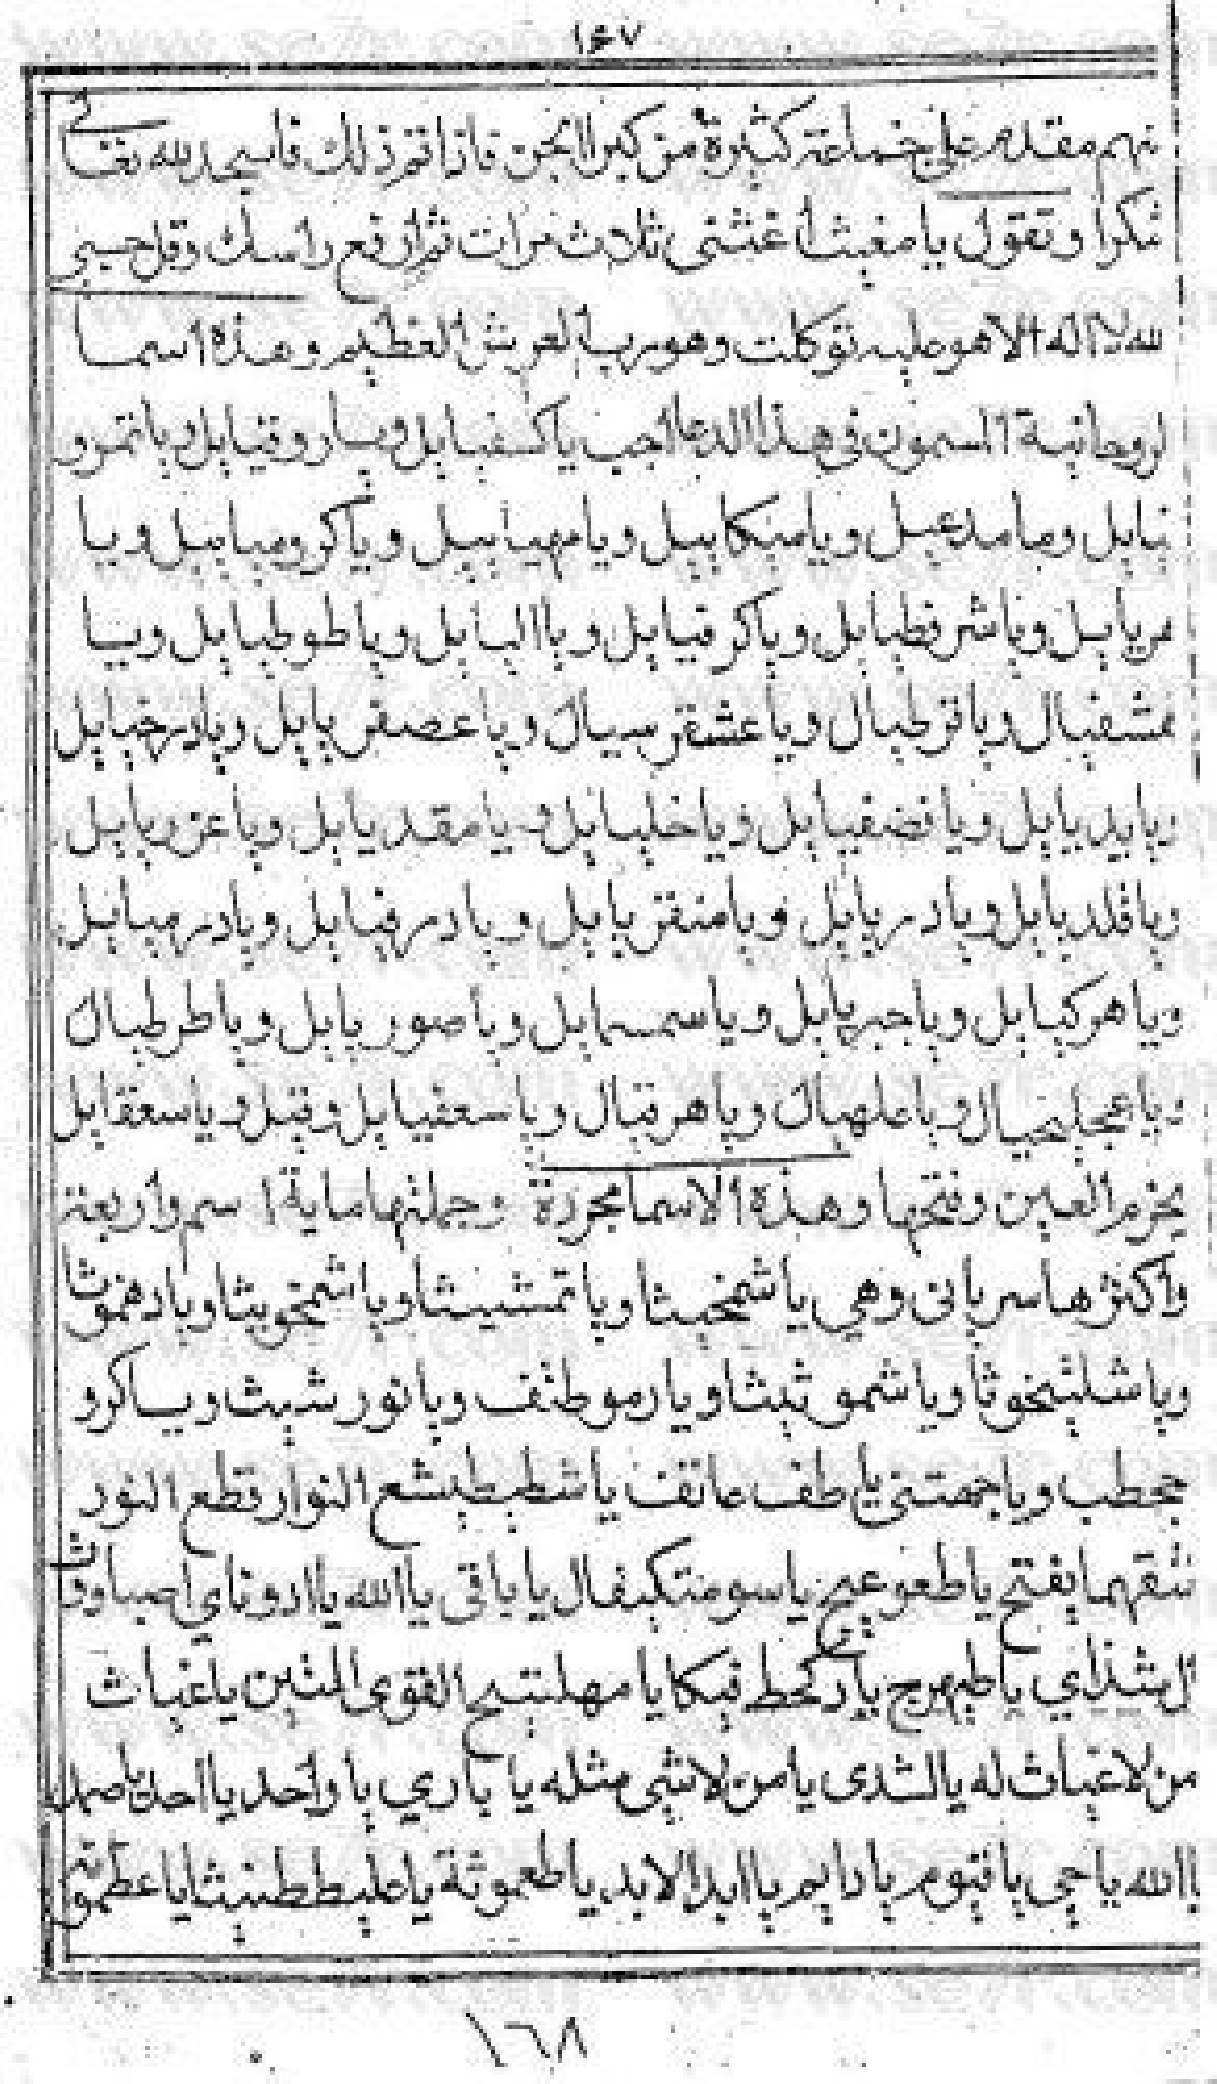 ١٤٧
نهم مقدم على جماعة كثيرة من كبر الانجن فاذا تم ذلك فاسجد لله تعالى
شكرا وتقول يا مغيث أغثنى ثلاث مرات ثم ارفع راسك وقل حسبى
لله لا اله الا هو عليه توكلت وهو رب العرش العظيم وهذه اسما
لروحانية المسمون فى هذا الدعا اجب يا كسفيايل ويا روقيايل ويا تمرو
نيايل ويا مدعيل ويا ميكاييل ويا مهياييل ويا كروميابيل ويا
مرياييل ويا شرنطيايل ويا كرفيايل ويا اليايل ويا طوطيايل ويا
مشفيال ويا قرطيال ويا عشقرسيال ويا عصفريايل ويا درخيايل
ويا يديايل ويا نضفيايل ويا خليايل ويا مقديايل ويا عزوريايل
ويا فلديايل ويا دريايل ويا منقريايل ويا درفيايل ويا درميايل
ويا هركيايل ويا جبريايل ويا سمسمايل ويا صوريايل ويا طرطيال
ويا عجلهيال ويا علهيال ويا هرقيال ويا سعفيايل وقيل ويا سعقايل
بجزم العين وفتحها وهذه الاسما مجردة وجملتها ماية اسم واربعة
واكثرها سريانى وهي يا شمخيثا ويا تمشيثا ويا شمخوثيا ويا دهموثا
ويا شلشخوثا ويا شموثيثا ويا رموطثف ويا نورشيث ويا كرو
جحطب ويا طف عاتف يا شطبطبشع النوار قطع النور
يفتح يا طعوعج يا سومتكيفال يا باقى يا الله يا ادوناي اصباووث
ال شداي يا طهمرج يا مهلشيح القوى المتين يا غياث
من لا غياث له يا لشدى يا من لا شى مثله يا باري يا واحد يا احد يا صمد
يا الله يا حي يا قيوم يا دايم يا ابد الابد يا طعموثة يا علبططيثا يا عظموثه
١٦٨